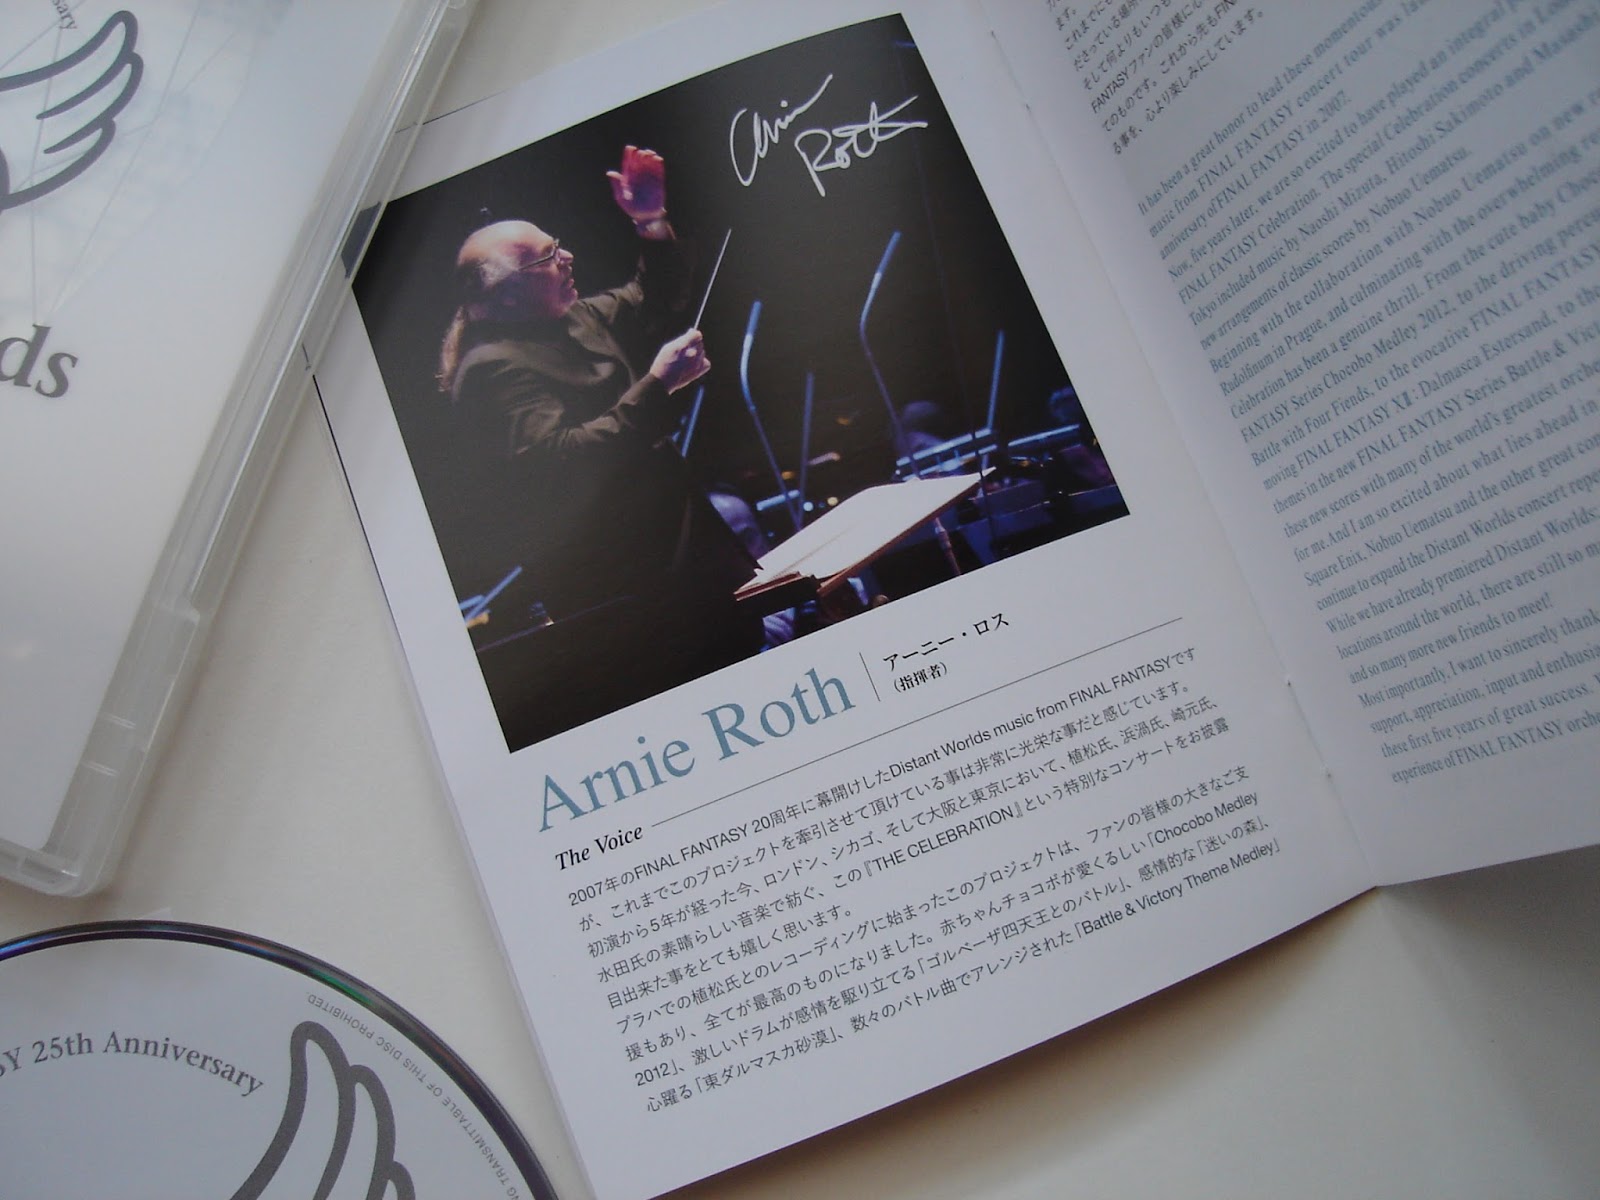 ds
SY 25th Anniversary
NG TRANSMITTABLE OF THIS DISC PROHIBITED
Arnie
Roth
Arnie Roth
アーニー・ロス
(指揮者)
The Voice
2007年のFINAL FANTASY 20周年に幕開けしたDistant Worlds music from FINAL FANTASYです
が、これまでこのプロジェクトを牽引させて頂けている事は非常に光栄な事だと感じています。
初演から5年が経った今、ロンドン、シカゴ、そして大阪と東京において、植松氏、浜渦氏、崎元氏、
水田氏の素晴らしい音楽で紡ぐ、この『THE CELEBRATION』という特別なコンサートをお披露
目出来た事をとても嬉しく思います。
プラハでの植松氏とのレコーディングに始まったこのプロジェクトは、ファンの皆様の大きなご支
援もあり、全てが最高のものになりました。赤ちゃんチョコボが愛くるしい「Chocobo Medley
2012」、激しいドラムが感情を駆り立てる「ゴルベーザ四天王とのバトル」、感情的な「迷いの森」、
心躍る「東ダルマスカ砂漠」、数々のバトル曲でアレンジされた「Battle & Victory Theme Medley」
ます。
これまでに
ださっている場所
そして何よりもいつも
FANTASYファンの皆様に心
てのものです。これから先もFIN
る事を、心より楽しみにしています。
It has been a great honor to lead these momentous
music from FINAL FANTASY concert tour was
anniversary of FINAL FANTASY in 2007.
Now, five years later, we are so excited to have played an integral
FINAL FANTASY Celebration. The special Celebration concerts in
Tokyo included music by Naoshi Mizuta, Hitoshi Sakimoto and
new arrangements of classic scores by Nobuo Uematsu.
Beginning with the collaboration with Nobuo Uematsu on new
Rudolfinum in Prague, and culminating with the overwhelming
Celebration has been a genuine thrill. From the cute baby
FANTASY Series Chocobo Medley 2012, to the driving
Battle with Four Fiends, to the evocative FINAL FANTASY
moving FINAL FANTASY XII: Dalmasca Estersand, to the
themes in the new FINAL FANTASY Series Battle &
these new scores with many of the world's greatest
for me. And I am so excited about what lies ahead in
Square Enix, Nobuo Uematsu and the other great
continue to expand the Distant Worlds concert
While we have already premiered Distant Worlds:
locations around the world, there are still so
and so many more new friends to meet!
Most importantly, I want to sincerely thank
support, appreciation, input and
these first five years of great success.
experience of FINAL FANTASY